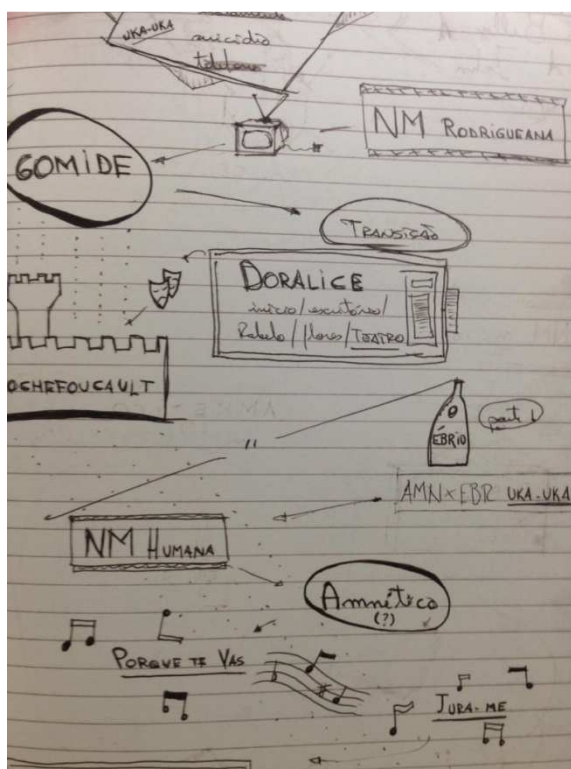 UKA-UKA
suicídio
telefone
NM RODRIGUEANA
GOMIDE
TRANSIÇÃO
DORALICE
início/escritório/
Rebelo/flores/TEATRO
OCHEFOUCAULT
EBRIO
part 1
AMN x EBR UKA-UKA
NM HUMANA
Amnético
(?)
PORQUE TE VAS
JURA-ME